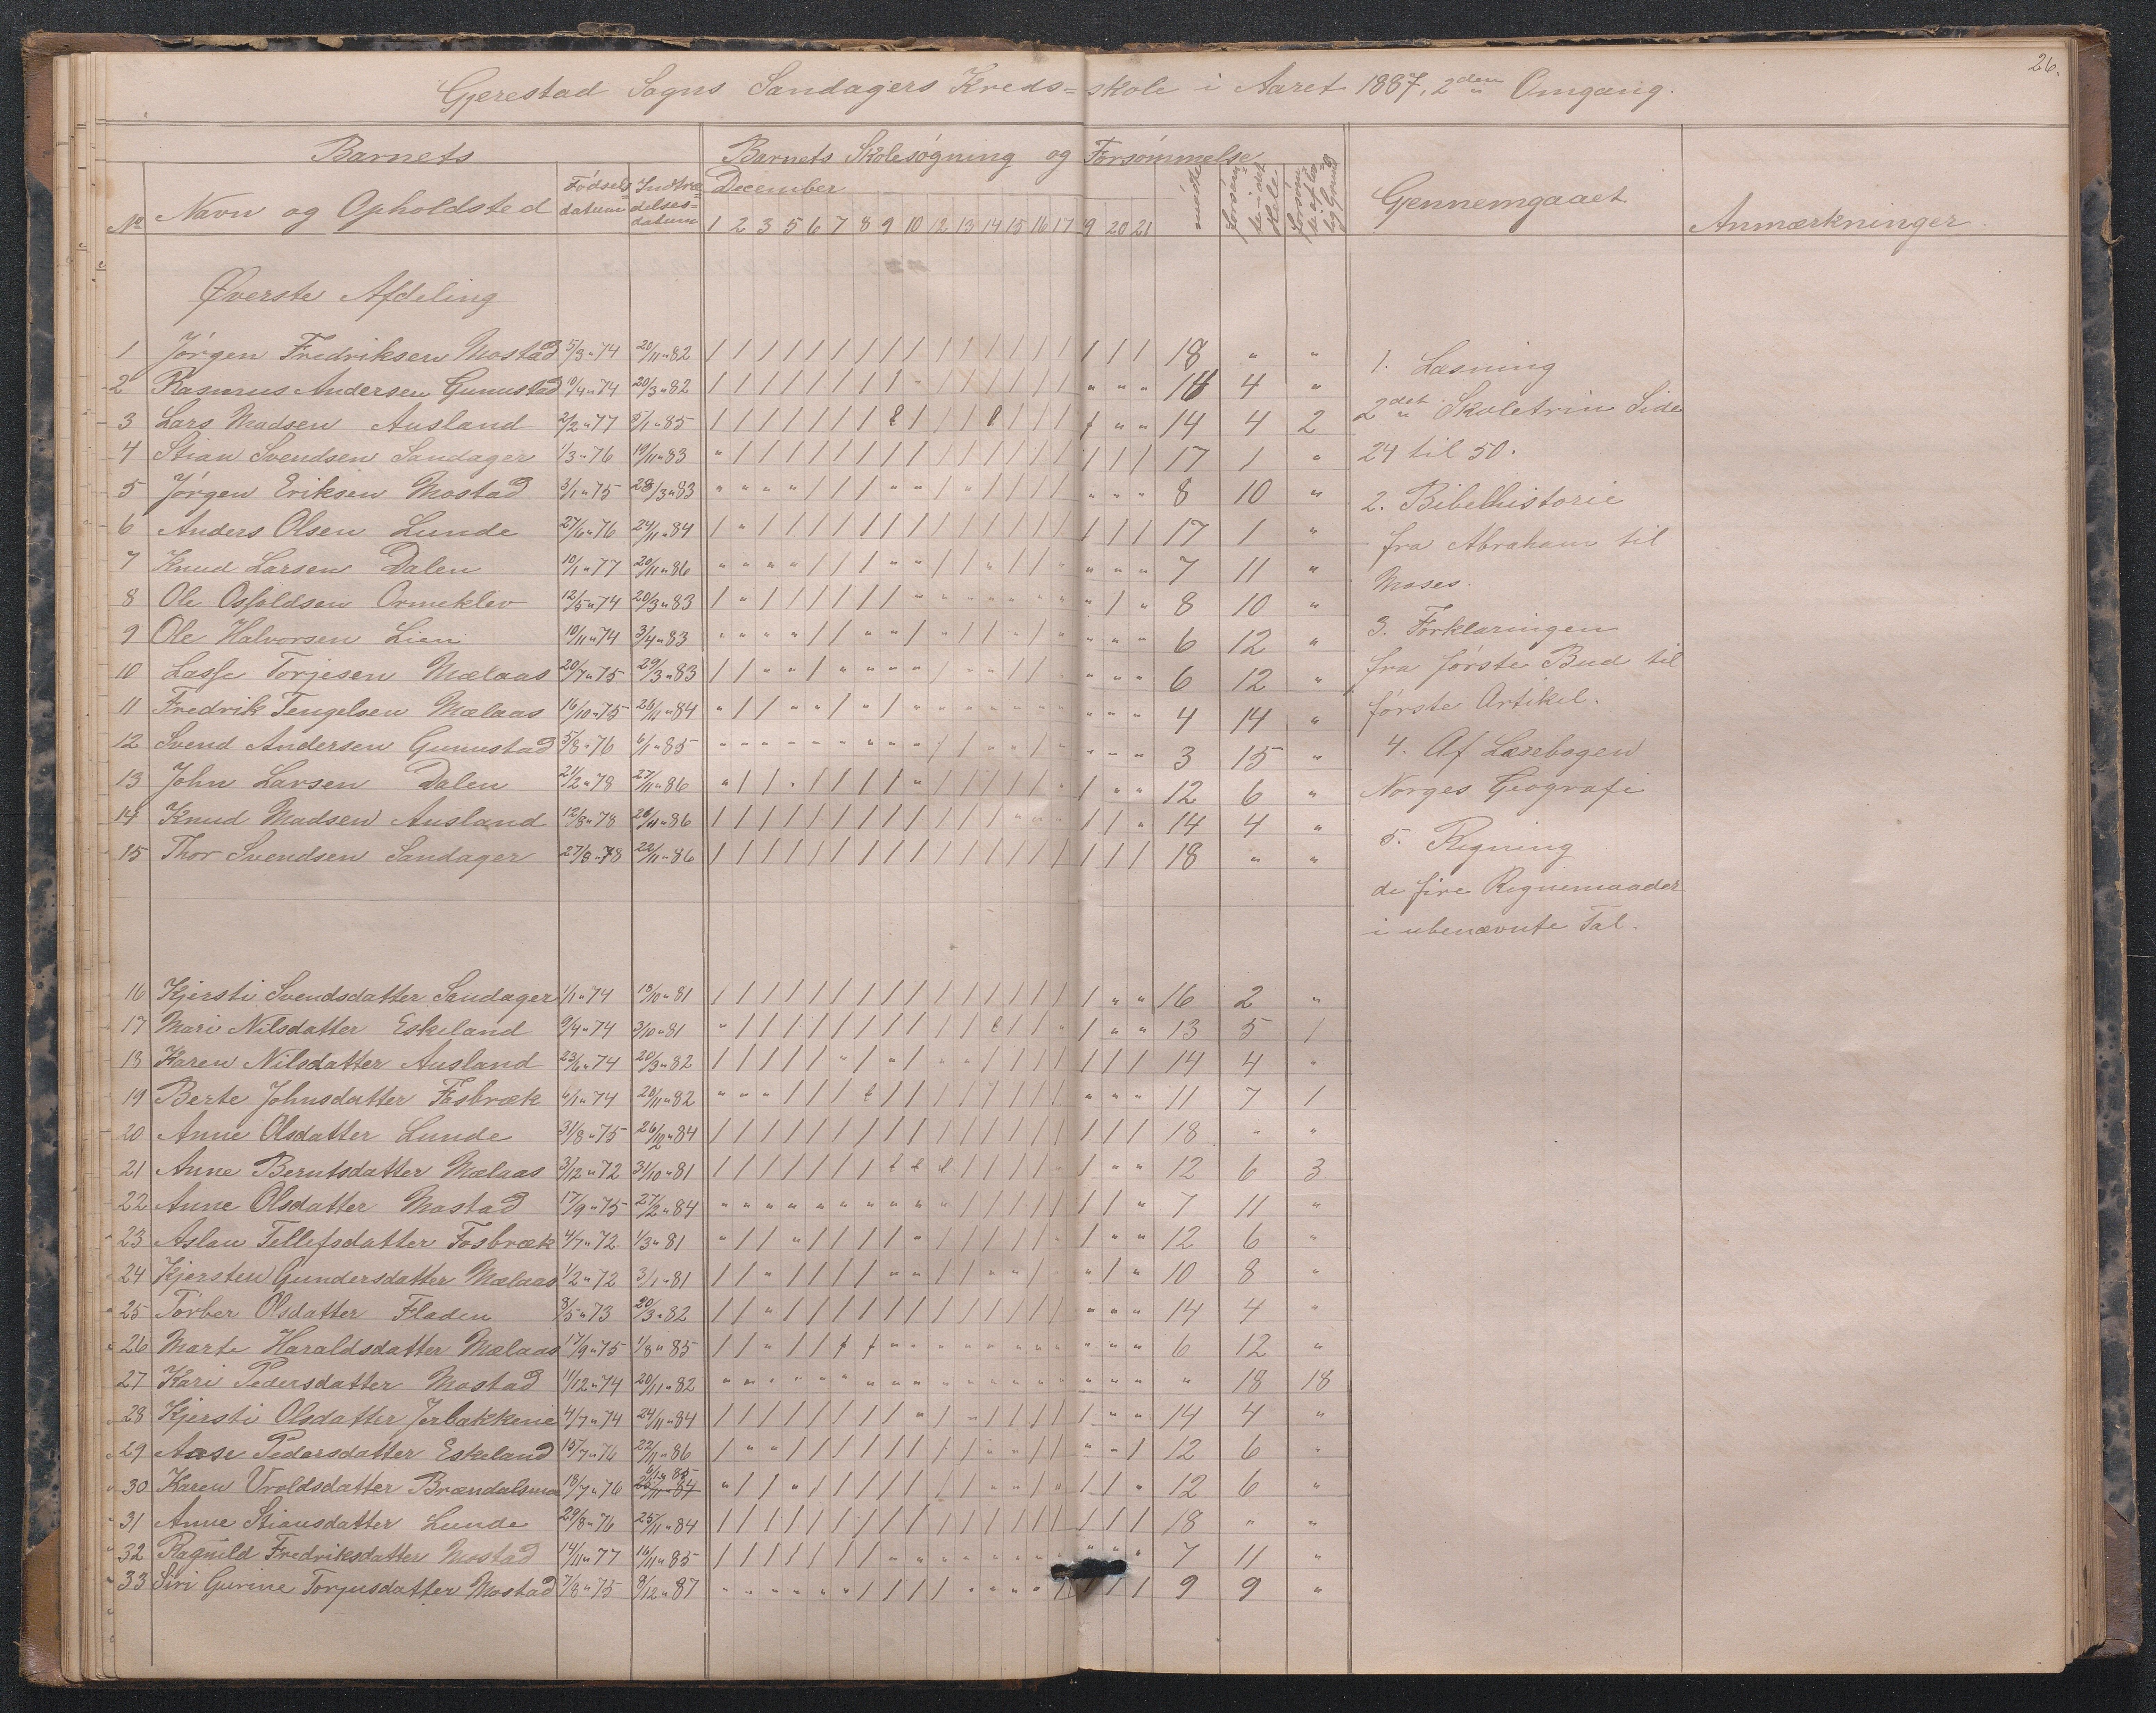 26.
Gjerestad Sogns Sandagers Kreds=skole i Aaret 1887, 2den Omgang.
Barnets
Barnets Skolesøgning og Forsømmelse
No Navn og Opholdsted
Fødselsdatum
Indtrædelses=datum
December
1 2 3 5 6 7 8 9 10 12 13 14 15 16 17 19 20 21
møde
Gjennemgaaet
Anmærkninger.
Øverste Afdeling
1 Jørgen Fredriksen Mostad 5/3 " 74 20/11 " 82 / / / / / / / / / / / / / / / / / / 18 " "
2 Rasmus Andersen Gunnustad 10/4 " 74 20/3 " 82 14 4 "
3 Lars Madsen Ausland 2/2 " 77 5/1 " 85 14 4 2
4 Stian Svendsen Sandager 1/3 " 76 19/11 " 83 17 1 "
5 Jørgen Eriksen Mostad 3/1 " 75 28/3 " 83 8 10 "
6 Anders Olsen Lunde 27/6 " 76 24/11 " 84 17 1 "
7 Knud Larsen Dalen 10/1 " 77 20/11 " 86 7 11 "
8 Ole Osfoldsen Ormeklev 12/5 " 74 20/3 " 83 8 10 "
9 Ole Halvorsen Lien 10/11 " 74 3/4 " 83 6 12 "
10 Lasse Torjesen Mælaas 20/7 " 75 29/3 " 83 6 12 "
11 Fredrik Tengelsen Mælaas 16/10 " 75 26/11 " 84 4 14 "
12 Svend Andersen Gunnustad 5/8 " 76 6/1 " 85 3 15 "
13 John Larsen Dalen 21/2 " 78 27/11 " 86 12 6 "
14 Knud Madsen Ausland 12/8 " 78 26/11 " 86 14 4 "
15 Thor Svendsen Sandager 27/8 " 78 22/11 " 86 / / / / / / / / / / / / / / / / / / 18 " "
16 Kjersti Svendsdatter Sandager 1/1 " 74 18/10 " 81 16 2 "
17 Mari Nilsdatter Eskeland 9/4 " 74 3/10 " 81 13 5 1
18 Karen Nilsdatter Ausland 23/6 " 74 20/3 " 82 14 4 "
19 Berte Johnsdatter Fosbræk 6/1 " 74 20/11 " 82 11 7 1
20 Anne Olsdatter Lunde 31/8 " 75 26/10 " 84 / / / / / / / / / / / / / / / / / / 18 " "
21 Anne Berntsdatter Mælaas 3/12 " 72 31/10 " 81 12 6 3
22 Anne Olsdatter Mostad 17/9 " 75 27/2 " 84 7 11 "
23 Aslau Tellefsdatter Fosbræk 4/7 " 72 1/3 " 81 12 6 "
24 Kjersten Gundersdatter Mælaas 1/2 " 72 3/1 " 81 10 8 "
25 Torber Olsdatter Fladen 8/5 " 73 20/3 " 82 14 4 "
26 Marte Haraldsdatter Mælaas 17/9 " 75 1/8 " 85 6 12 "
27 Kari Pedersdatter Mostad 11/12 " 74 20/11 " 82 " 18 18
28 Kjersti Olsdatter Jerbakkene 4/7 " 74 24/11 " 84 14 4 "
29 Aase Pedersdatter Eskeland 15/7 " 76 22/11 " 86 12 6 "
30 Karen Vroldsdatter Brændalsmo 18/7 " 76 12 6 "
31 Anne Stiansdatter Lunde 29/8 " 76 25/11 " 84 / / / / / / / / / / / / / / / / / / 18 " "
32 Ragnild Fredriksdatter Mostad 14/11 " 77 16/11 " 85 7 11 "
33 Siri Gurine Torjusdatter Mostad 7/8 " 75 9/12 " 87 9 9 "
1. Læsning
2det Skoletrin Side
24 til 50.
2. Bibelhistorie
fra Abraham til
Moses.
3. Forklaringen
fra første Bud til
første Artikel.
4. Af Læsebogen
Norges Geografi
5. Regning
de fire Regnemaader
i ubenævnte Tal.